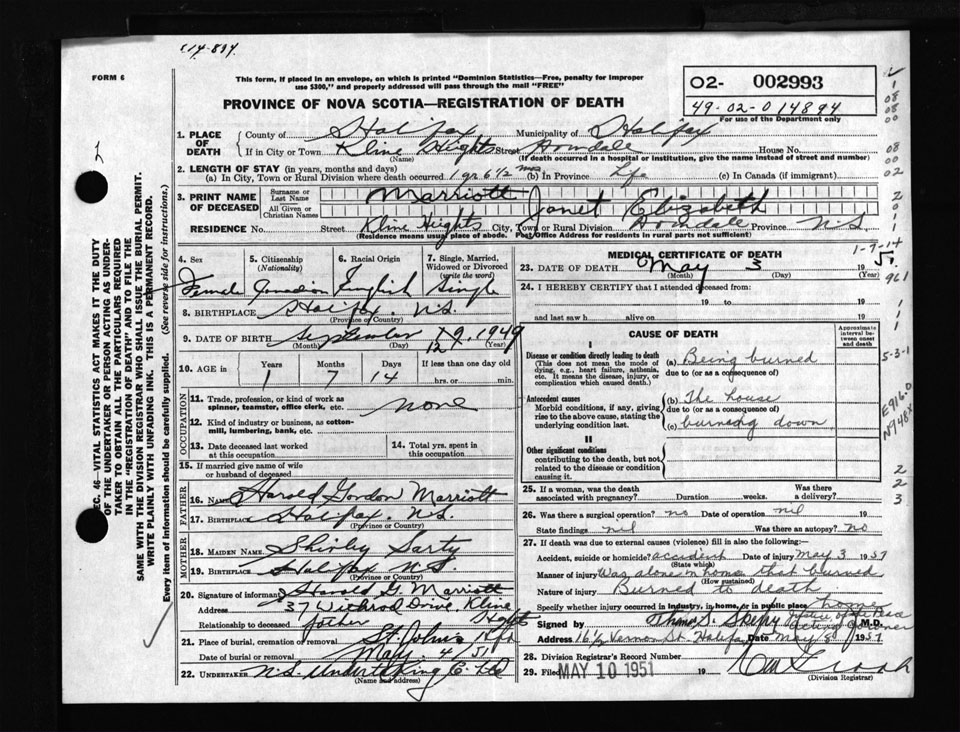 114-894
FORM 6
This form, if placed in an envelope, on which is printed "Dominion Statistics—Free, penalty for improper
use $300," and properly addressed will pass through the mail "FREE"
O2- 002993
49-02-014894
For use of the Department only
PROVINCE OF NOVA SCOTIA—REGISTRATION OF DEATH
1. PLACE OF DEATH
County of Halifax Municipality of Halifax
If in City or Town Kline Heights Street Armdale House No.
(Name) (If death occurred in a hospital or institution, give the name instead of street and number)
2. LENGTH OF STAY (in years, months and days)
(a) In City, Town or Rural Division where death occurred 1 yr 6½ mos (b) In Province Life (c) In Canada (if immigrant)
3. PRINT NAME OF DECEASED
Surname or Last Name Marriott
All Given or Christian Names Janet Elizabeth
RESIDENCE No. Street Kline Heights City, Town or Rural Division Armdale Province N.S.
(Residence means usual place of abode. Post Office Address for residents in rural parts not sufficient)
4. Sex Female
5. Citizenship (Nationality) Canadian
6. Racial Origin English
7. Single, Married, Widowed or Divorced (write the word) Single
8. BIRTHPLACE Halifax, N.S.
(Province or Country)
9. DATE OF BIRTH September 19, 1949
12
(Month) (Day) (Year)
10. AGE in Years Months Days If less than one day old
1 7 4 hrs. or min.
OCCUPATION
11. Trade, profession, or kind of work as spinner, teamster, office clerk, etc. none
12. Kind of industry or business, as cotton-mill, lumbering, bank, etc.
13. Date deceased last worked at this occupation
14. Total yrs. spent in this occupation
15. If married give name of wife or husband of deceased
FATHER
16. Name Harold Gordon Marriott
17. Birthplace Halifax, N.S.
(Province or Country)
MOTHER
18. Maiden Name Shirley Sarty
19. Birthplace Halifax N.S.
(Province or Country)
20. Signature of informant Harold G. Marriott
Address 37 Withrod Drive, Kline Heights
Relationship to deceased father
21. Place of burial, cremation or removal St. Johns Hfx
Date of burial or removal May 4/51
22. Undertaker N.S. Undertaking Co. Ltd
(Name and address)
MEDICAL CERTIFICATE OF DEATH
1-7-14
23. DATE OF DEATH May 3 1951
(Month) (Day) (Year)
24. I HEREBY CERTIFY that I attended deceased from:
19 to 19
and last saw h alive on 19
CAUSE OF DEATH
Approximate interval between onset and death
I
Disease or condition directly leading to death
This does not mean the mode of dying, e.g., heart failure, asthenia, etc. It means the disease, injury, or complication which caused death.
(a) Being burned
due to (or as a consequence of)
Antecedent causes
Morbid conditions, if any, giving rise to the above cause, stating the underlying condition last.
(b) The house
due to (or as a consequence of)
(c) burning down
II
Other significant conditions
contributing to the death, but not related to the disease or condition causing it.
25. If a woman, was the death associated with pregnancy? Duration weeks. Was there a delivery?
26. Was there a surgical operation? no Date of operation nil
State findings nil Was there an autopsy? No
27. If death was due to external causes (violence) fill in also the following:—
Accident, suicide or homicide? accident Date of injury May 3 1951
(State which)
Manner of injury Was alone in home that burned
(How sustained)
Nature of injury Burned to death
Specify whether injury occurred in industry, in home, or in public place home
Signed by Justice of the Peace acting Coroner M.D.
Address 16½ Vernon St. Halifax Date May 8 1951
28. Division Registrar's Record Number
29. Filed MAY 10 1951 19
(Division Registrar)
961
5-3-1
E916.0
N948X
SEC. 46—VITAL STATISTICS ACT MAKES IT THE DUTY
OF THE UNDERTAKER OR PERSON ACTING AS UNDER-
TAKER TO OBTAIN ALL THE PARTICULARS REQUIRED
IN THE "REGISTRATION OF DEATH" AND TO FILE THE
SAME WITH THE DIVISION REGISTRAR WHO SHALL ISSUE THE BURIAL PERMIT.
WRITE PLAINLY WITH UNFADING INK. THIS IS A PERMANENT RECORD.
Every item of information should be carefully supplied. (See reverse side for instructions.)